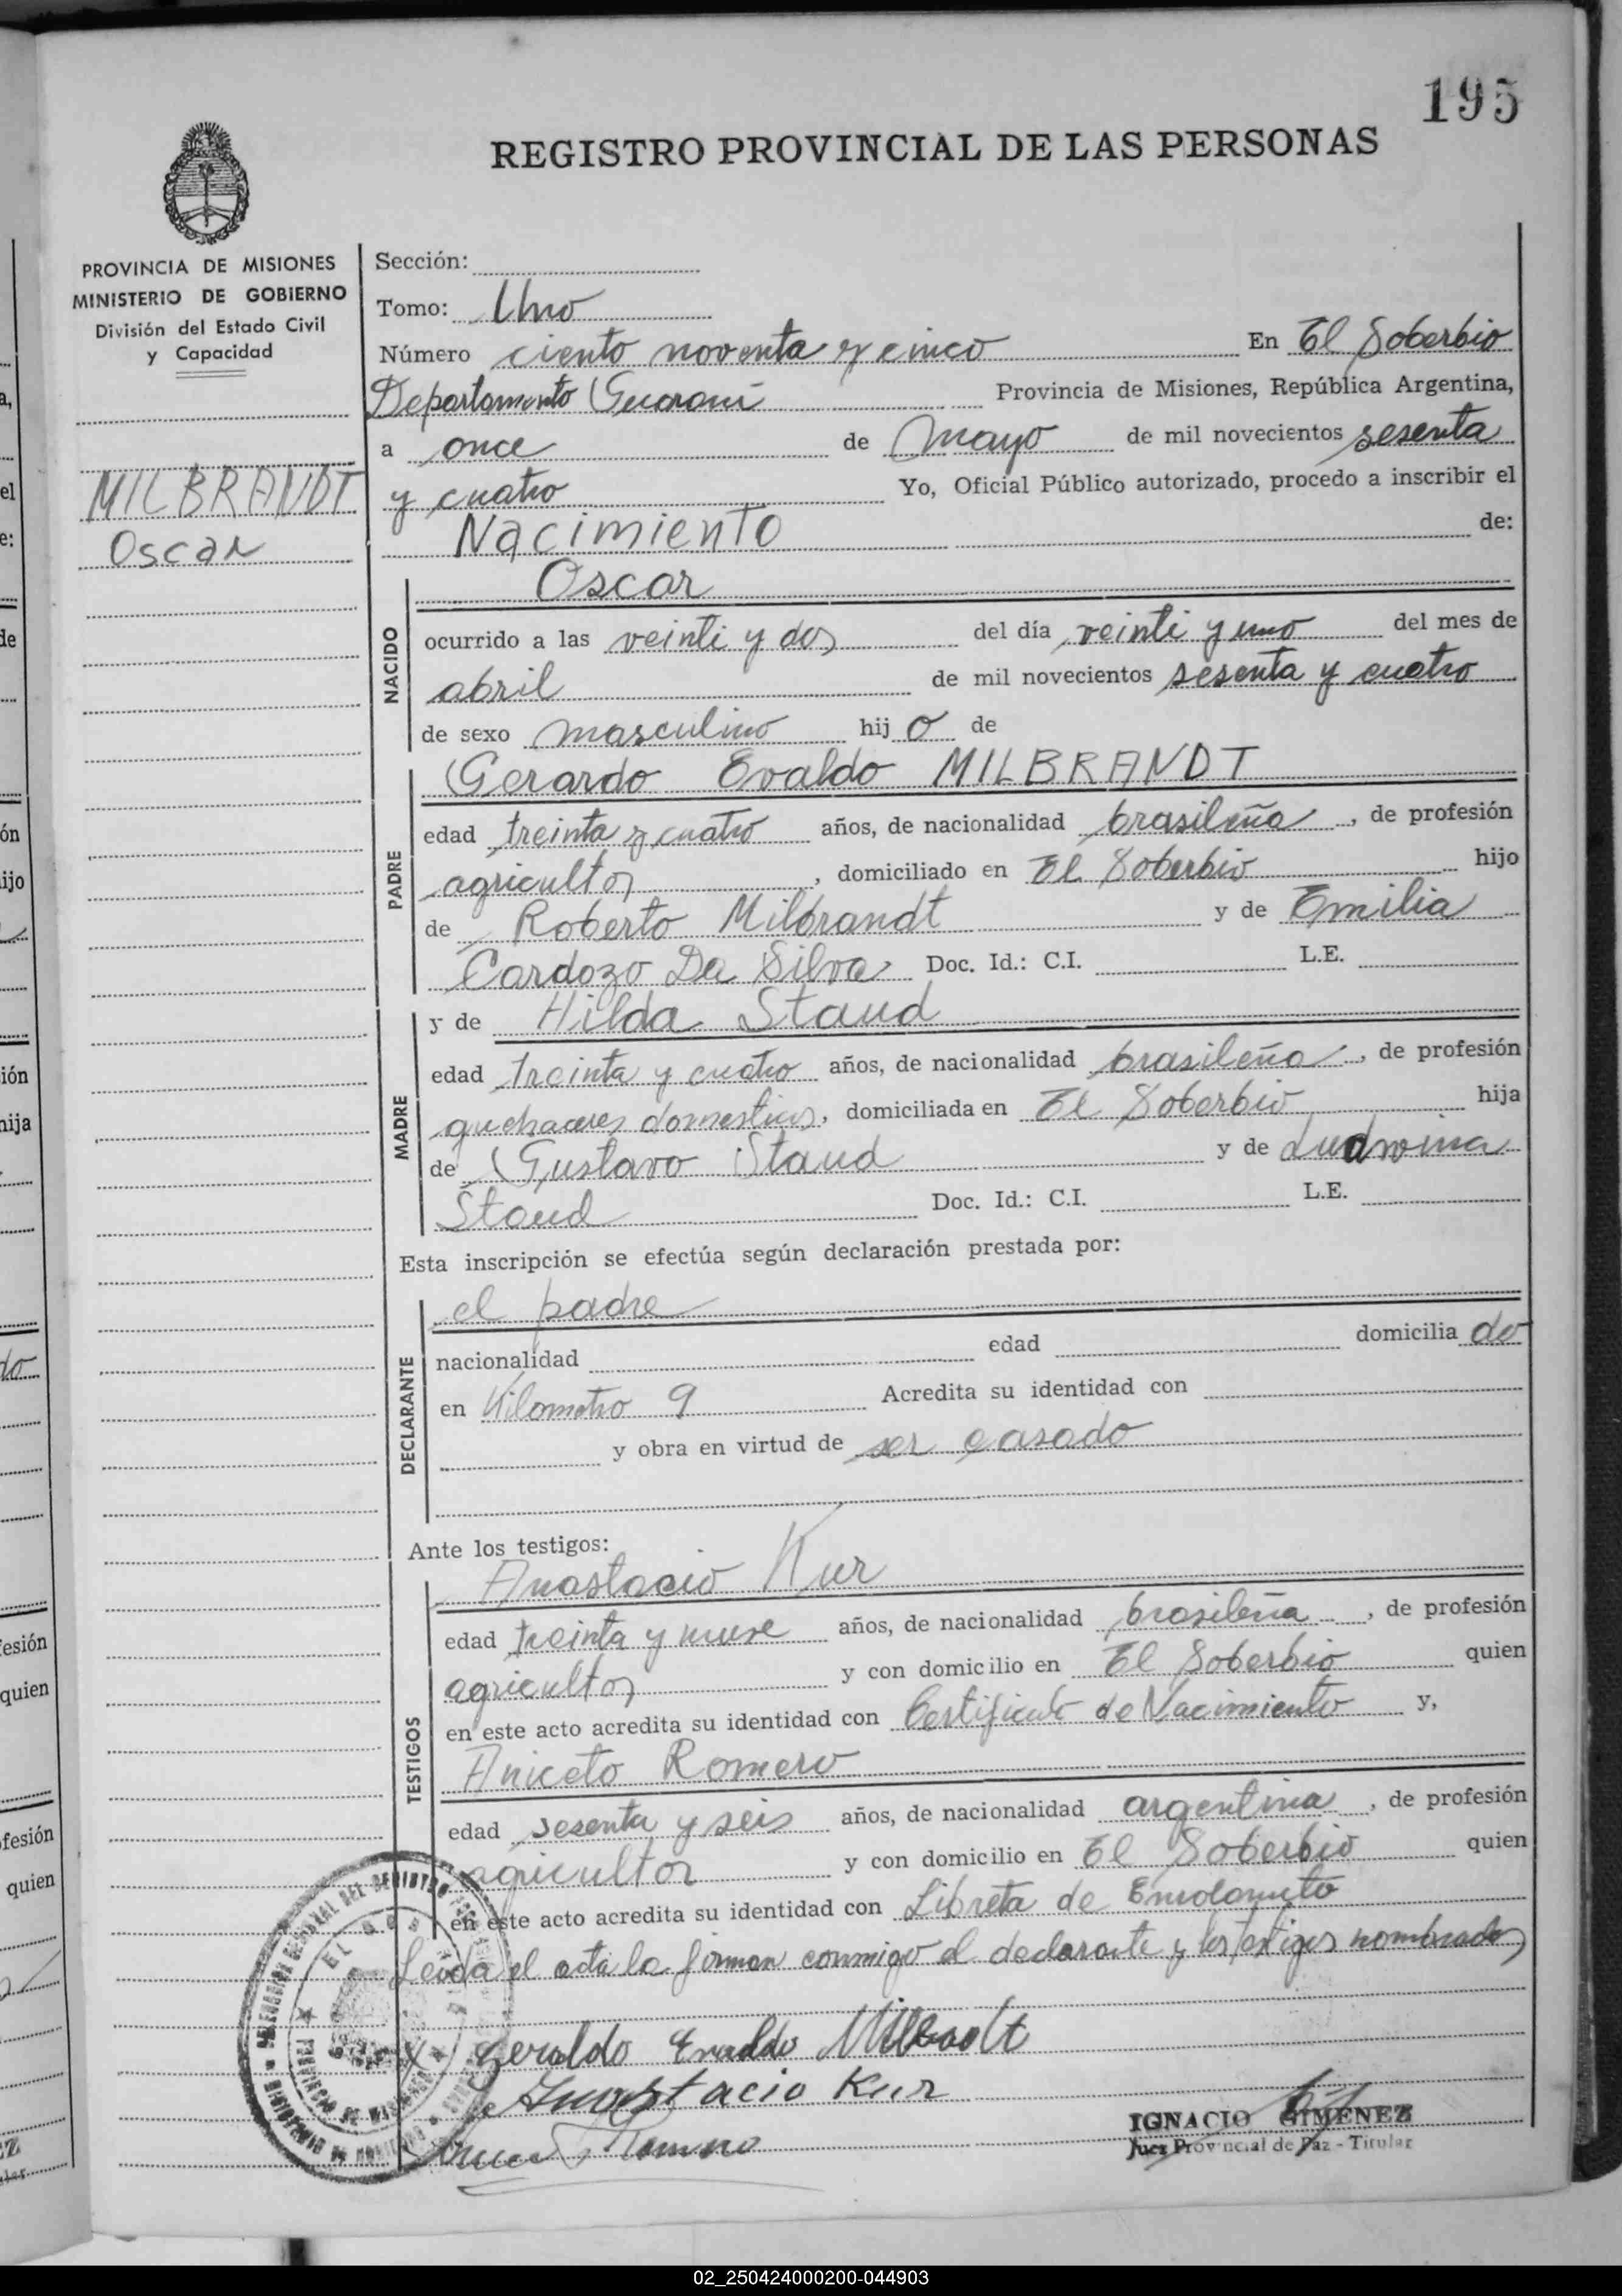 195
REGISTRO PROVINCIAL DE LAS PERSONAS
PROVINCIA DE MISIONES
MINISTERIO DE GOBIERNO
División del Estado Civil
y Capacidad
MILBRANDT
Oscar
Sección:
Tomo: Uno
Número ciento noventa y cinco En El Soberbio
Departamento Guaraní Provincia de Misiones, República Argentina,
a once de mayo de mil novecientos sesenta
y cuatro Yo, Oficial Público autorizado, procedo a inscribir el
Nacimiento de:
NACIDO
Oscar
ocurrido a las veinti y dos del día veinti y uno del mes de
abril de mil novecientos sesenta y cuatro
de sexo masculino hij o de
PADRE
Gerardo Evaldo MILBRANDT
edad treinta y cuatro años, de nacionalidad brasileña, de profesión
agricultor, domiciliado en El Soberbio hijo
de Roberto Milbrandt y de Emilia
Cardozo Da Silva Doc. Id.: C.I. L.E.
MADRE
y de Hilda Staud
edad treinta y cuatro años, de nacionalidad brasileña, de profesión
quehaceres domesticos, domiciliada en El Soberbio hija
de Gustavo Staud y de Ludwina
Staud Doc. Id.: C.I. L.E.
Esta inscripción se efectúa según declaración prestada por:
DECLARANTE
el padre
nacionalidad edad domicilia do
en Kilometro 9 Acredita su identidad con
y obra en virtud de ser casado
Ante los testigos:
TESTIGOS
Anastacio Kur
edad treinta y nueve años, de nacionalidad brasileña, de profesión
agricultor y con domicilio en El Soberbio quien
en este acto acredita su identidad con Certificado de Nacimiento y,
Aniceto Romero
edad sesenta y seis años, de nacionalidad argentina, de profesión
agricultor y con domicilio en El Soberbio quien
en este acto acredita su identidad con Libreta de Enrolamiento
Leida el acta la firman conmigo el declarante y los testigos nombrados
Geraldo Evaldo
Anastacio Kur
IGNACIO GIMENEZ
Juez Provincial de Paz - Titular
02_250424000200-044903